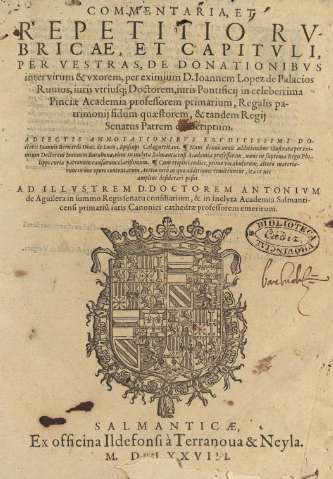 COMMENTARIA, ET
REPETITIO RV-
BRICAE, ET CAPITVLI,
PER VESTRAS, DE DONATIONIBVS
inter virum & vxorem, per eximium D. Ioannem Lopez de Palacios
Ruuios, iuris vtriusq; Doctorem, iuris Pontificij in celeberrima
Pinciæ Academia professorem primarium, Regalis pa-
trimonij fidum quæstorem, & tandem Regij
Senatus Patrem conscriptum.
ADIECTIS ANNOTATIONIBVS EXPERTISSIMI DO-
ctoris Ioannis Bernardi Diaz de Luco, episcopi Calaguritani.
AD ILLVSTREM D. DOCTOREM ANTONIVM
de Aguilera in summo Regis senatu consiliarium, & in inclyta Academia Salmanti-
censi primariū iuris Canonici cathedræ professorem emeritum.
BIBLIOTECA
Cadiz
PROVINCIAL
SALMANTICÆ,
Ex officina Ildefonsi à Terranoua & Neyla.
M. D. LXXVIII.